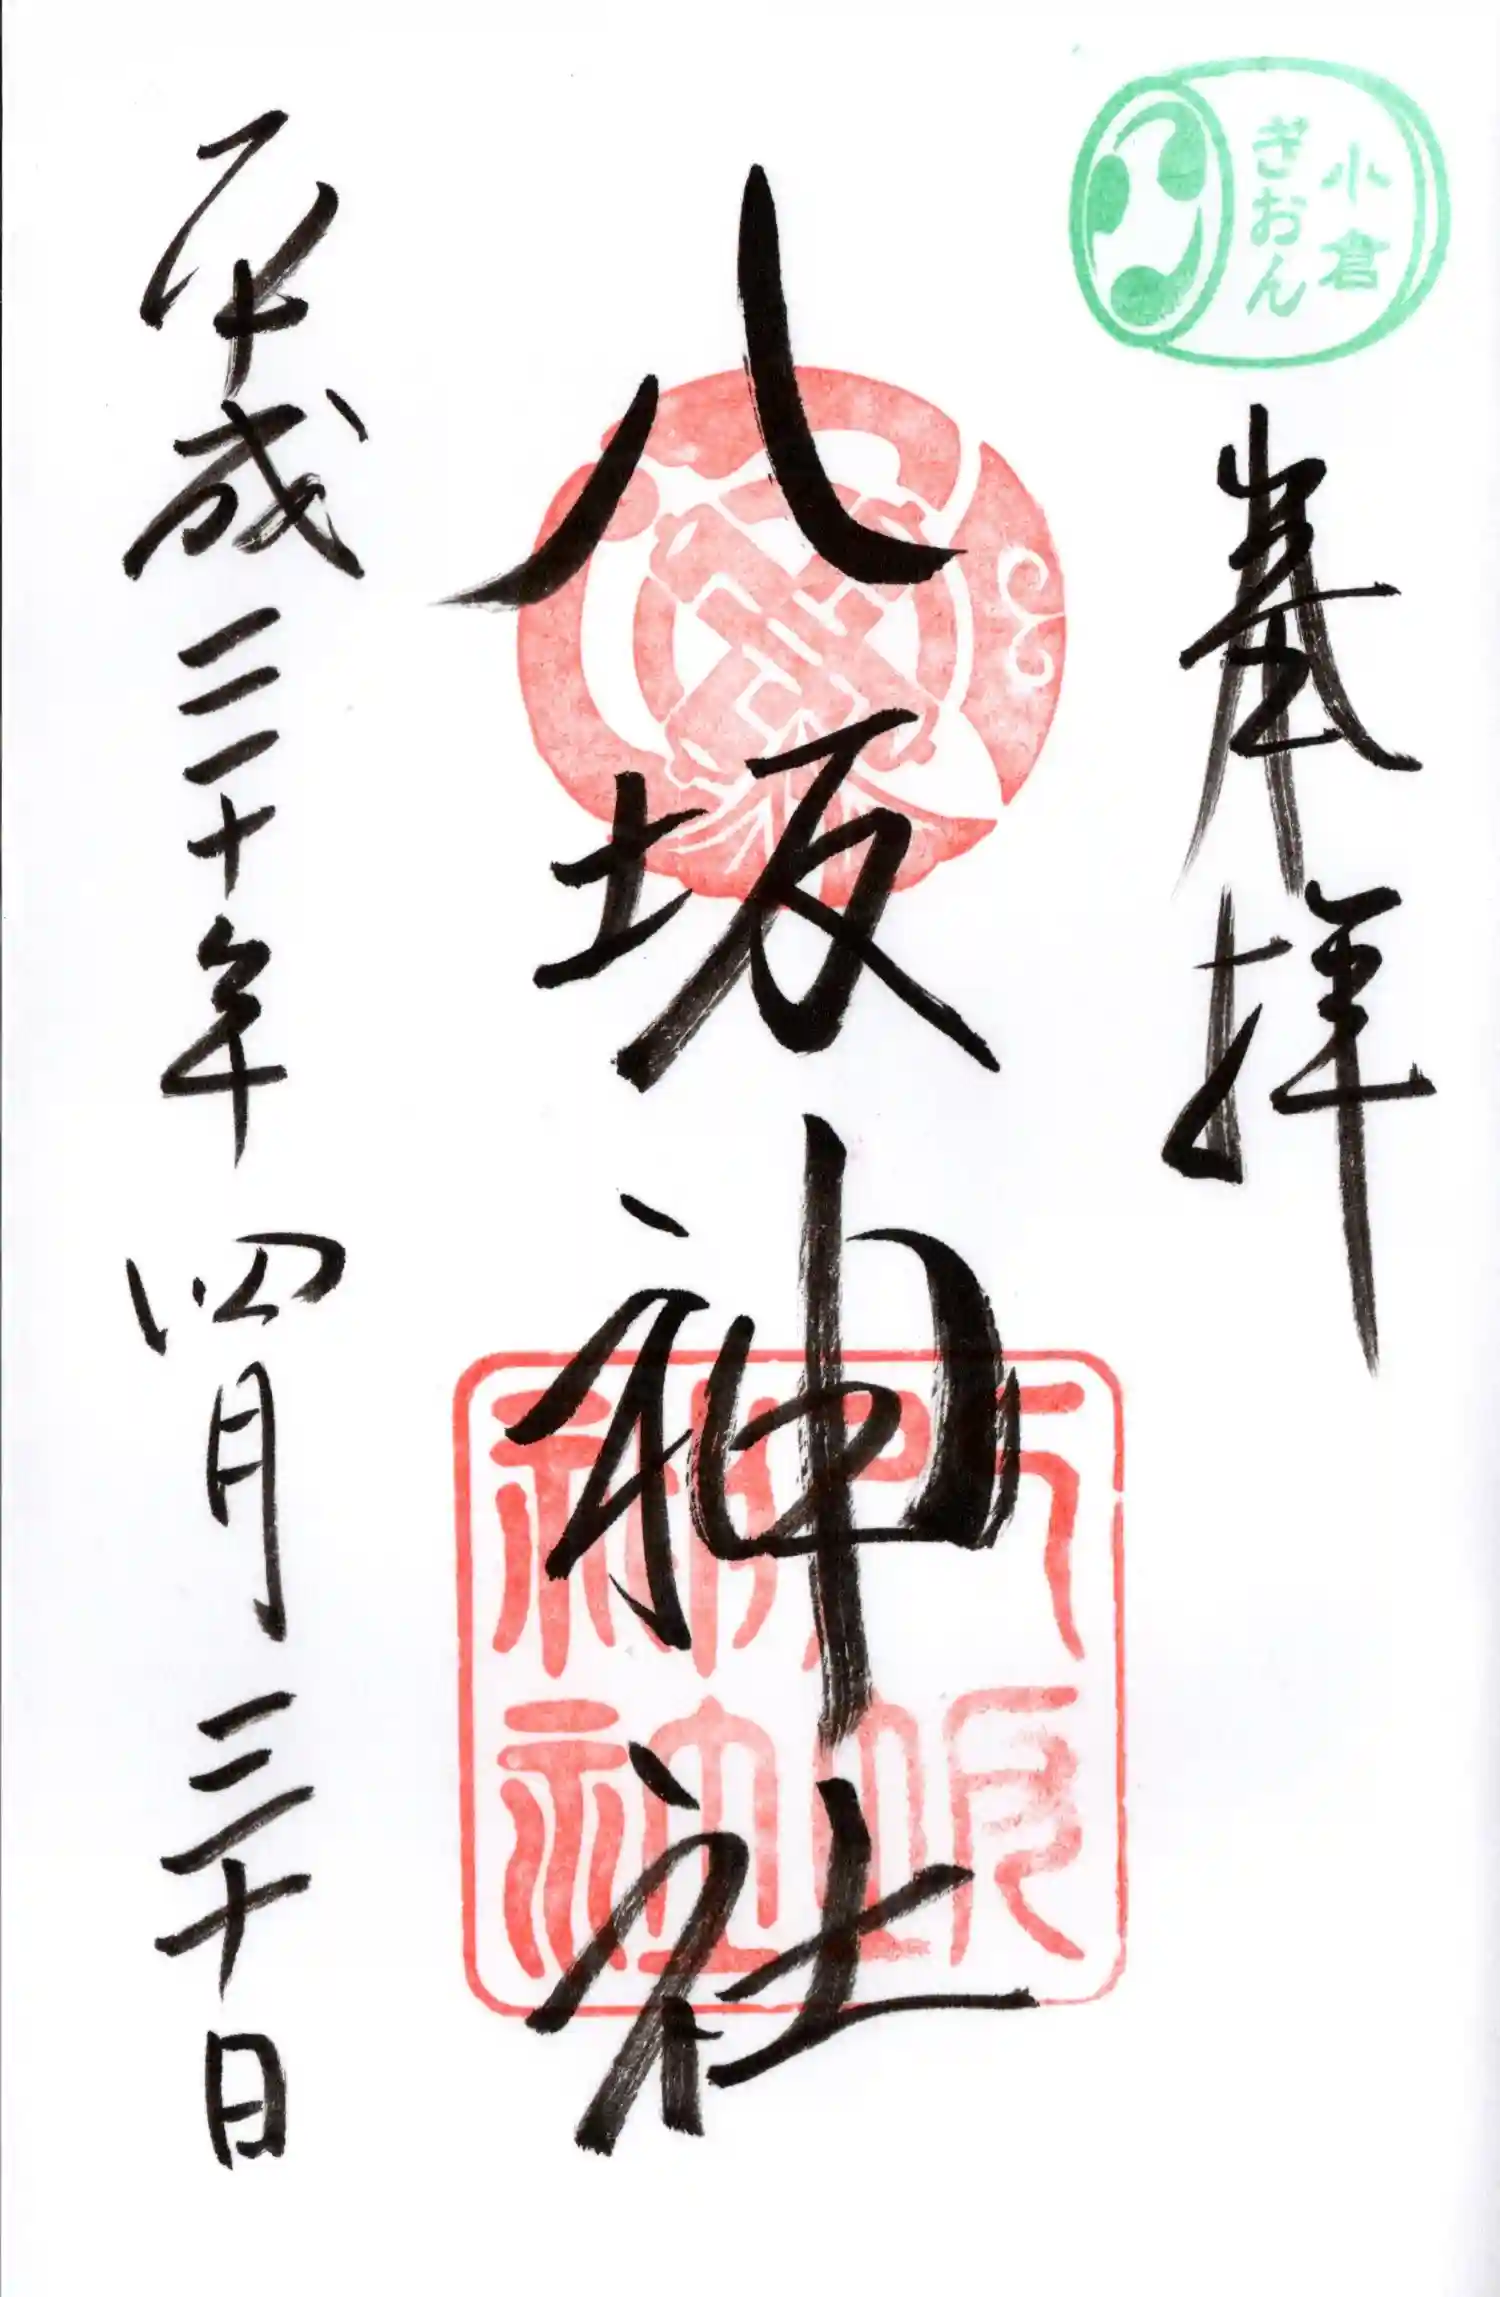 小倉
ぎおん
奉拝
八坂神社
八坂
神社
平成三十年四月三十日